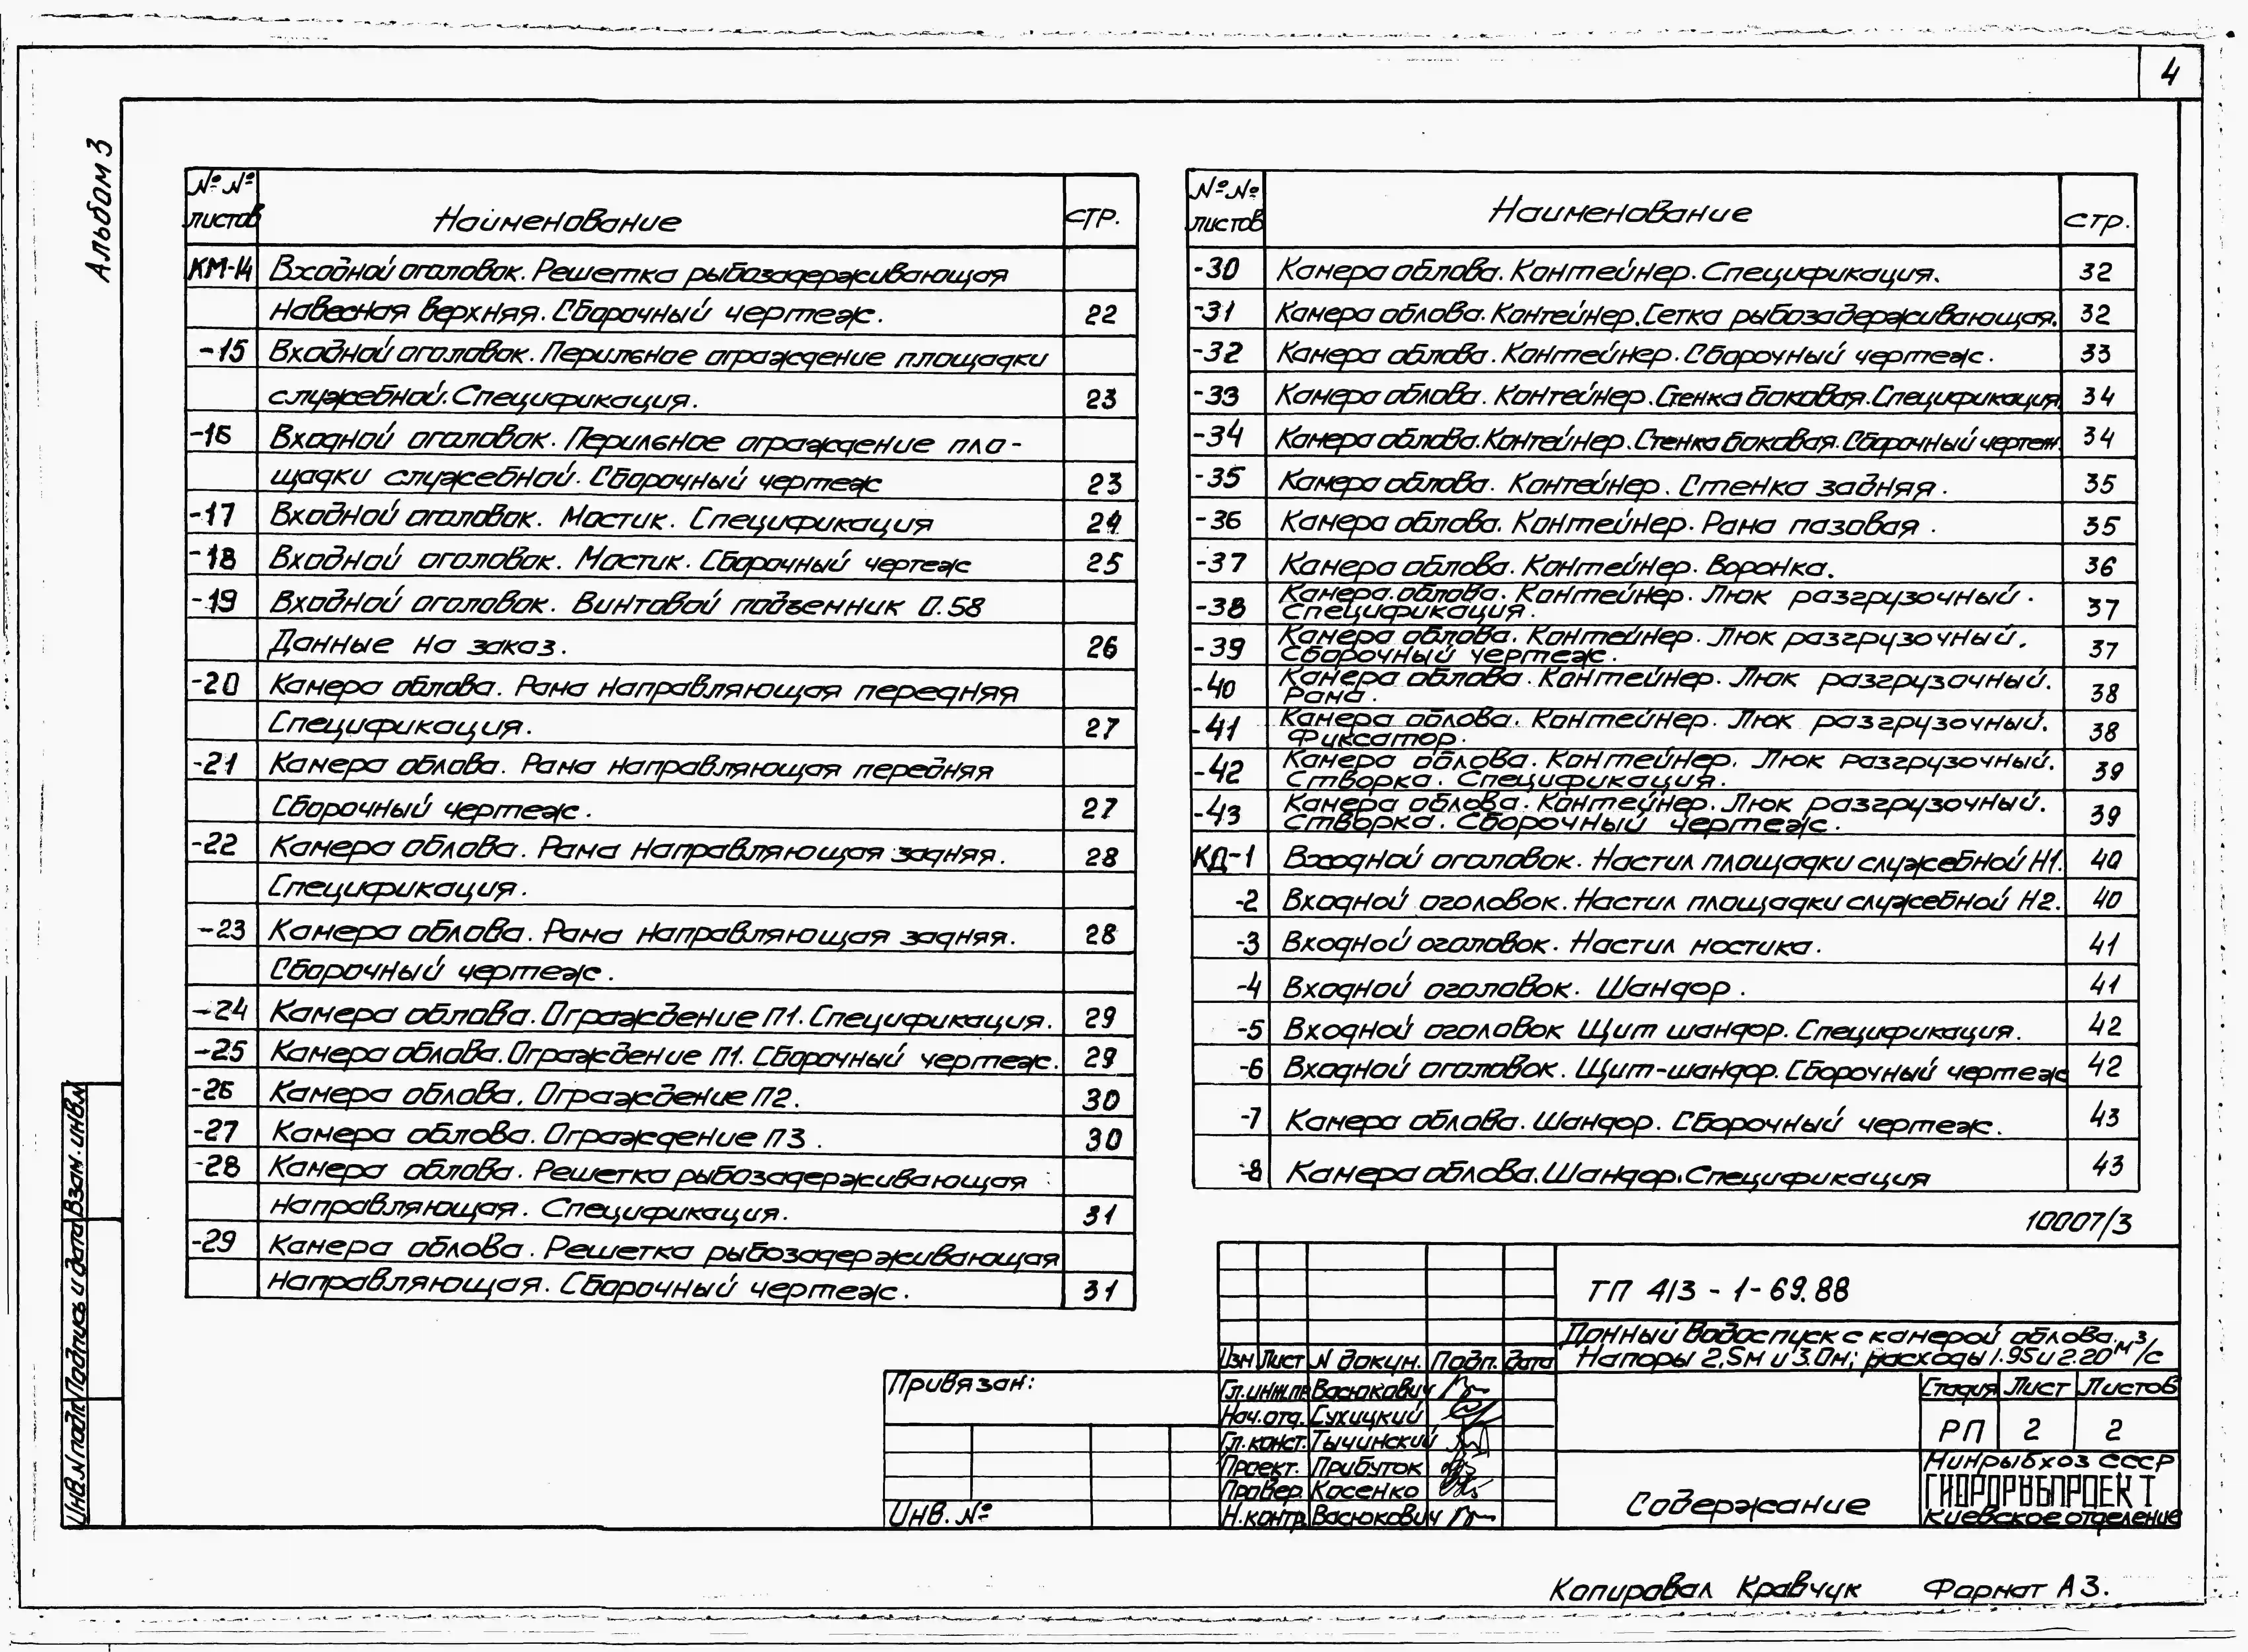 4
Альбом 3
№№ листов Наименование стр.
КМ-14 Входной оголовок. Решетка рыбозадерживающая
навесная верхняя. Сборочный чертеж. 22
-15 Входной оголовок. Перильное ограждение площадки
служебной. Спецификация. 23
-16 Входной оголовок. Перильное ограждение пло-
щадки служебной. Сборочный чертеж 23
-17 Входной оголовок. Мостик. Спецификация 24
-18 Входной оголовок. Мостик. Сборочный чертеж 25
-19 Входной оголовок. Винтовой подъемник 0.58
Данные на заказ. 26
-20 Камера облова. Рама направляющая передняя
Спецификация. 27
-21 Камера облова. Рама направляющая передняя
Сборочный чертеж. 27
-22 Камера облова. Рама направляющая задняя. 28
Спецификация.
-23 Камера облова. Рама направляющая задняя. 28
Сборочный чертеж.
-24 Камера облова. Ограждение П1. Спецификация. 29
-25 Камера облова. Ограждение П1. Сборочный чертеж. 29
-26 Камера облова. Ограждение П2. 30
-27 Камера облова. Ограждение П3. 30
-28 Камера облова. Решетка рыбозадерживающая
направляющая. Спецификация. 31
-29 Камера облова. Решетка рыбозадерживающая
направляющая. Сборочный чертеж. 31
№№ листов Наименование стр.
-30 Камера облова. Контейнер. Спецификация. 32
-31 Камера облова. Контейнер. Сетка рыбозадерживающая. 32
-32 Камера облова. Контейнер. Сборочный чертеж. 33
-33 Камера облова. Контейнер. Стенка боковая. Спецификация. 34
-34 Камера облова. Контейнер. Стенка боковая. Сборочный чертеж. 34
-35 Камера облова. Контейнер. Стенка задняя. 35
-36 Камера облова. Контейнер. Рама пазовая. 35
-37 Камера облова. Контейнер. Воронка. 36
-38 Камера облова. Контейнер. Люк разгрузочный.
Спецификация. 37
-39 Камера облова. Контейнер. Люк разгрузочный.
Сборочный чертеж. 37
-40 Камера облова. Контейнер. Люк разгрузочный.
Рама. 38
-41 Камера облова. Контейнер. Люк разгрузочный.
Фиксатор. 38
-42 Камера облова. Контейнер. Люк разгрузочный.
Створка. Спецификация. 39
-43 Камера облова. Контейнер. Люк разгрузочный.
Створка. Сборочный чертеж. 39
КД-1 Входной оголовок. Настил площадки служебной Н1. 40
-2 Входной оголовок. Настил площадки служебной Н2. 40
-3 Входной оголовок. Настил мостика. 41
-4 Входной оголовок. Шандор. 41
-5 Входной оголовок Щит шандор. Спецификация. 42
-6 Входной оголовок. Щит-шандор. Сборочный чертеж 42
-7 Камера облова. Шандор. Сборочный чертеж. 43
-8 Камера облова. Шандор. Спецификация 43
10007/3
ТП 413-1-69.88
Донный водоспуск с камерой облова.
Напоры 2,5м и 3.0м; расходы 1.95 и 2.20 м³/с
Изм Лист N докум. Подп. Дата
Гл.инж.пр Васюкович
Нач.отд. Сухицкий
Гл.конст. Тычинский
Проект. Прибуток
Провер. Косенко
Н.контр. Васюкович
Привязан:
Инв.№
Стадия Лист Листов
РП 2 2
Содержание
Минрыбхоз СССР
ГИДРОРЫБПРОЕКТ
Киевское отделение
Взам.инв.N
Подпись и дата
Инв.N подл
Копировал Кравчук Формат А3.